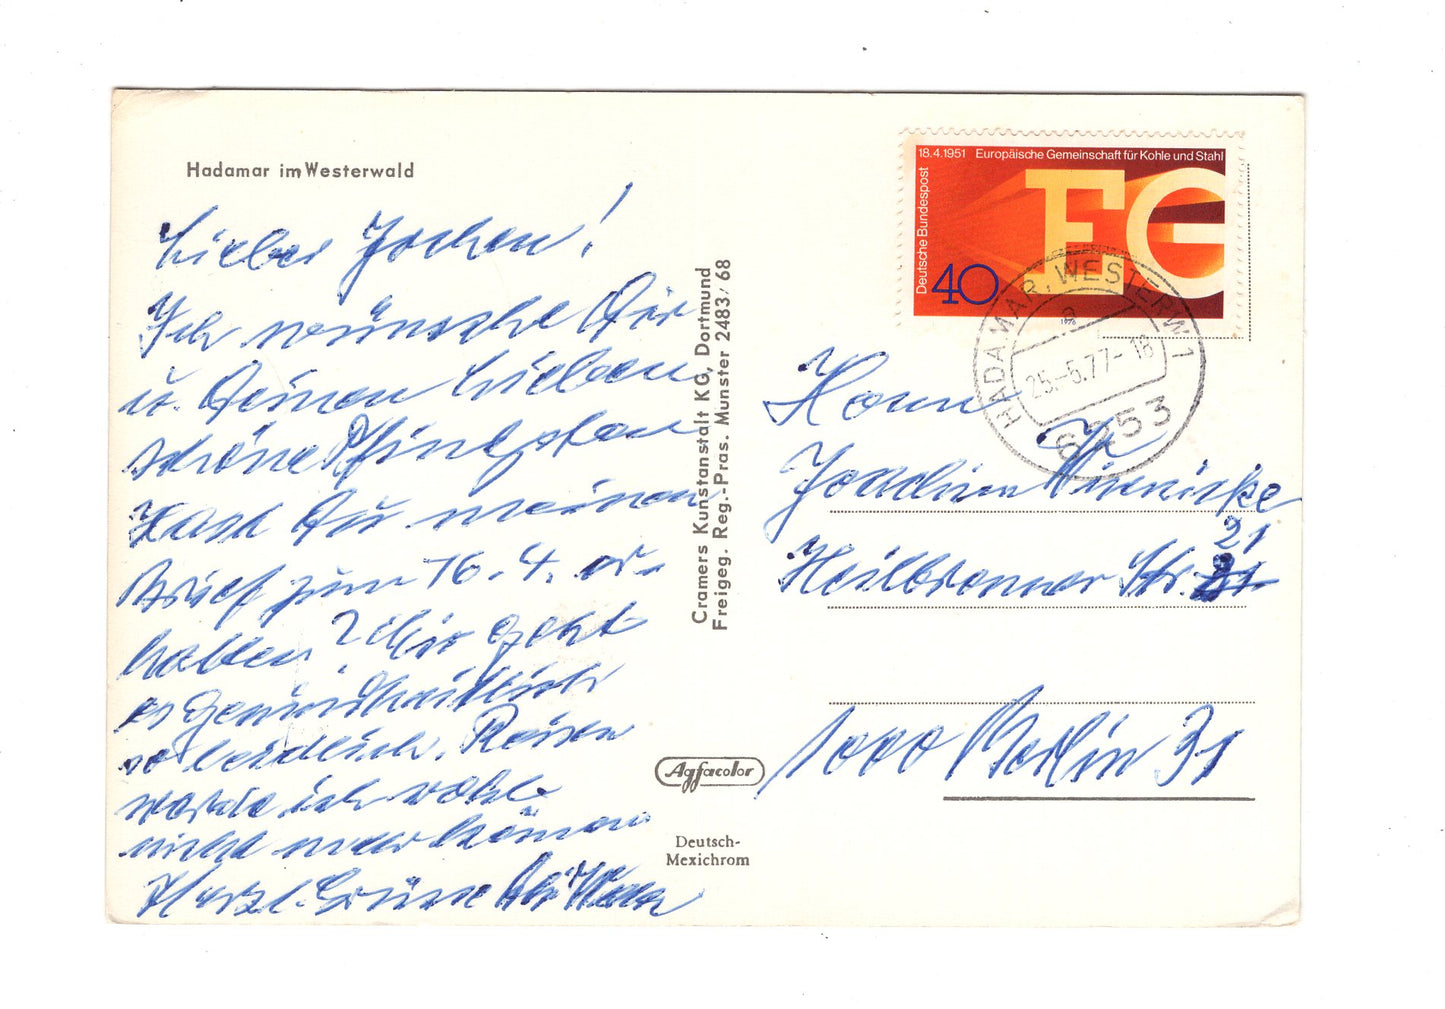 Hadamar im Westerwald
Lieber Jochen!
Ich wünsche Dir
u. Deinen Lieben
schöne Pfingsten
Hast Du meinen
Brief zum 16. 4. er-
halten? Mir geht
es gesundheitlich
so leidlich. Reisen
werde ich wohl
nicht mehr können
Herzl. Grüsse
Cramers Kunstanstalt KG, Dortmund
Freigeg. Reg.-Präs. Münster 2483/68
Agfacolor
Deutsch-
Mexichrom
18.4.1951 Europäische Gemeinschaft für Kohle und Stahl
Deutsche Bundespost
EG
40
1976
HADAMAR, WESTERW 1
a
25.-5.77-18
6253
Herrn
Joachim
21
Heilbronner Str.
1000 Berlin 31